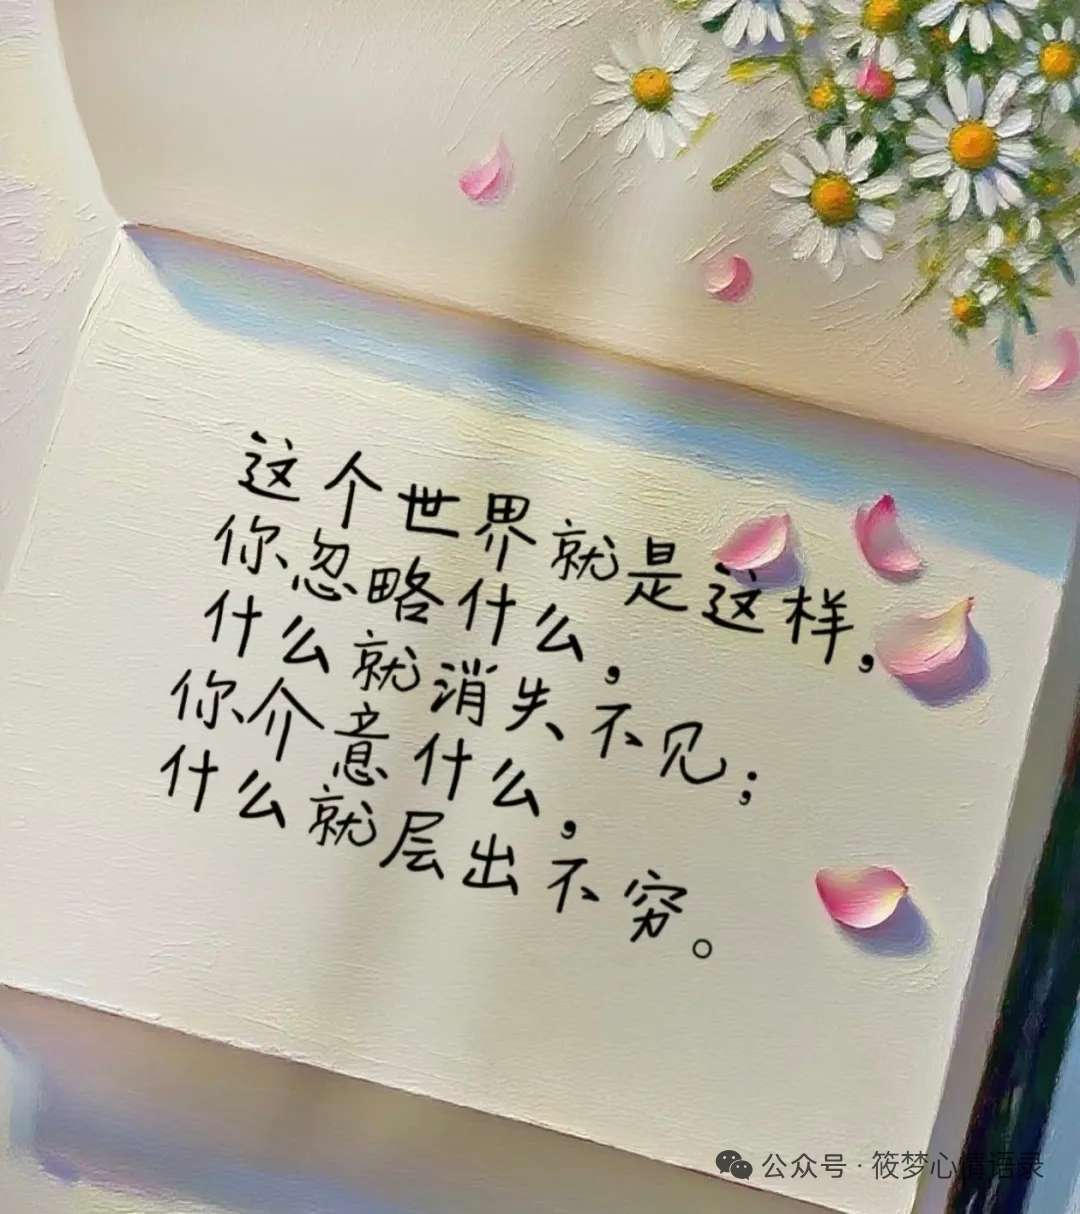 这个世界就是这样，
你忽略什么，
什么就消失不见；
你介意什么，
什么就层出不穷。
公众号·筱梦心情语录